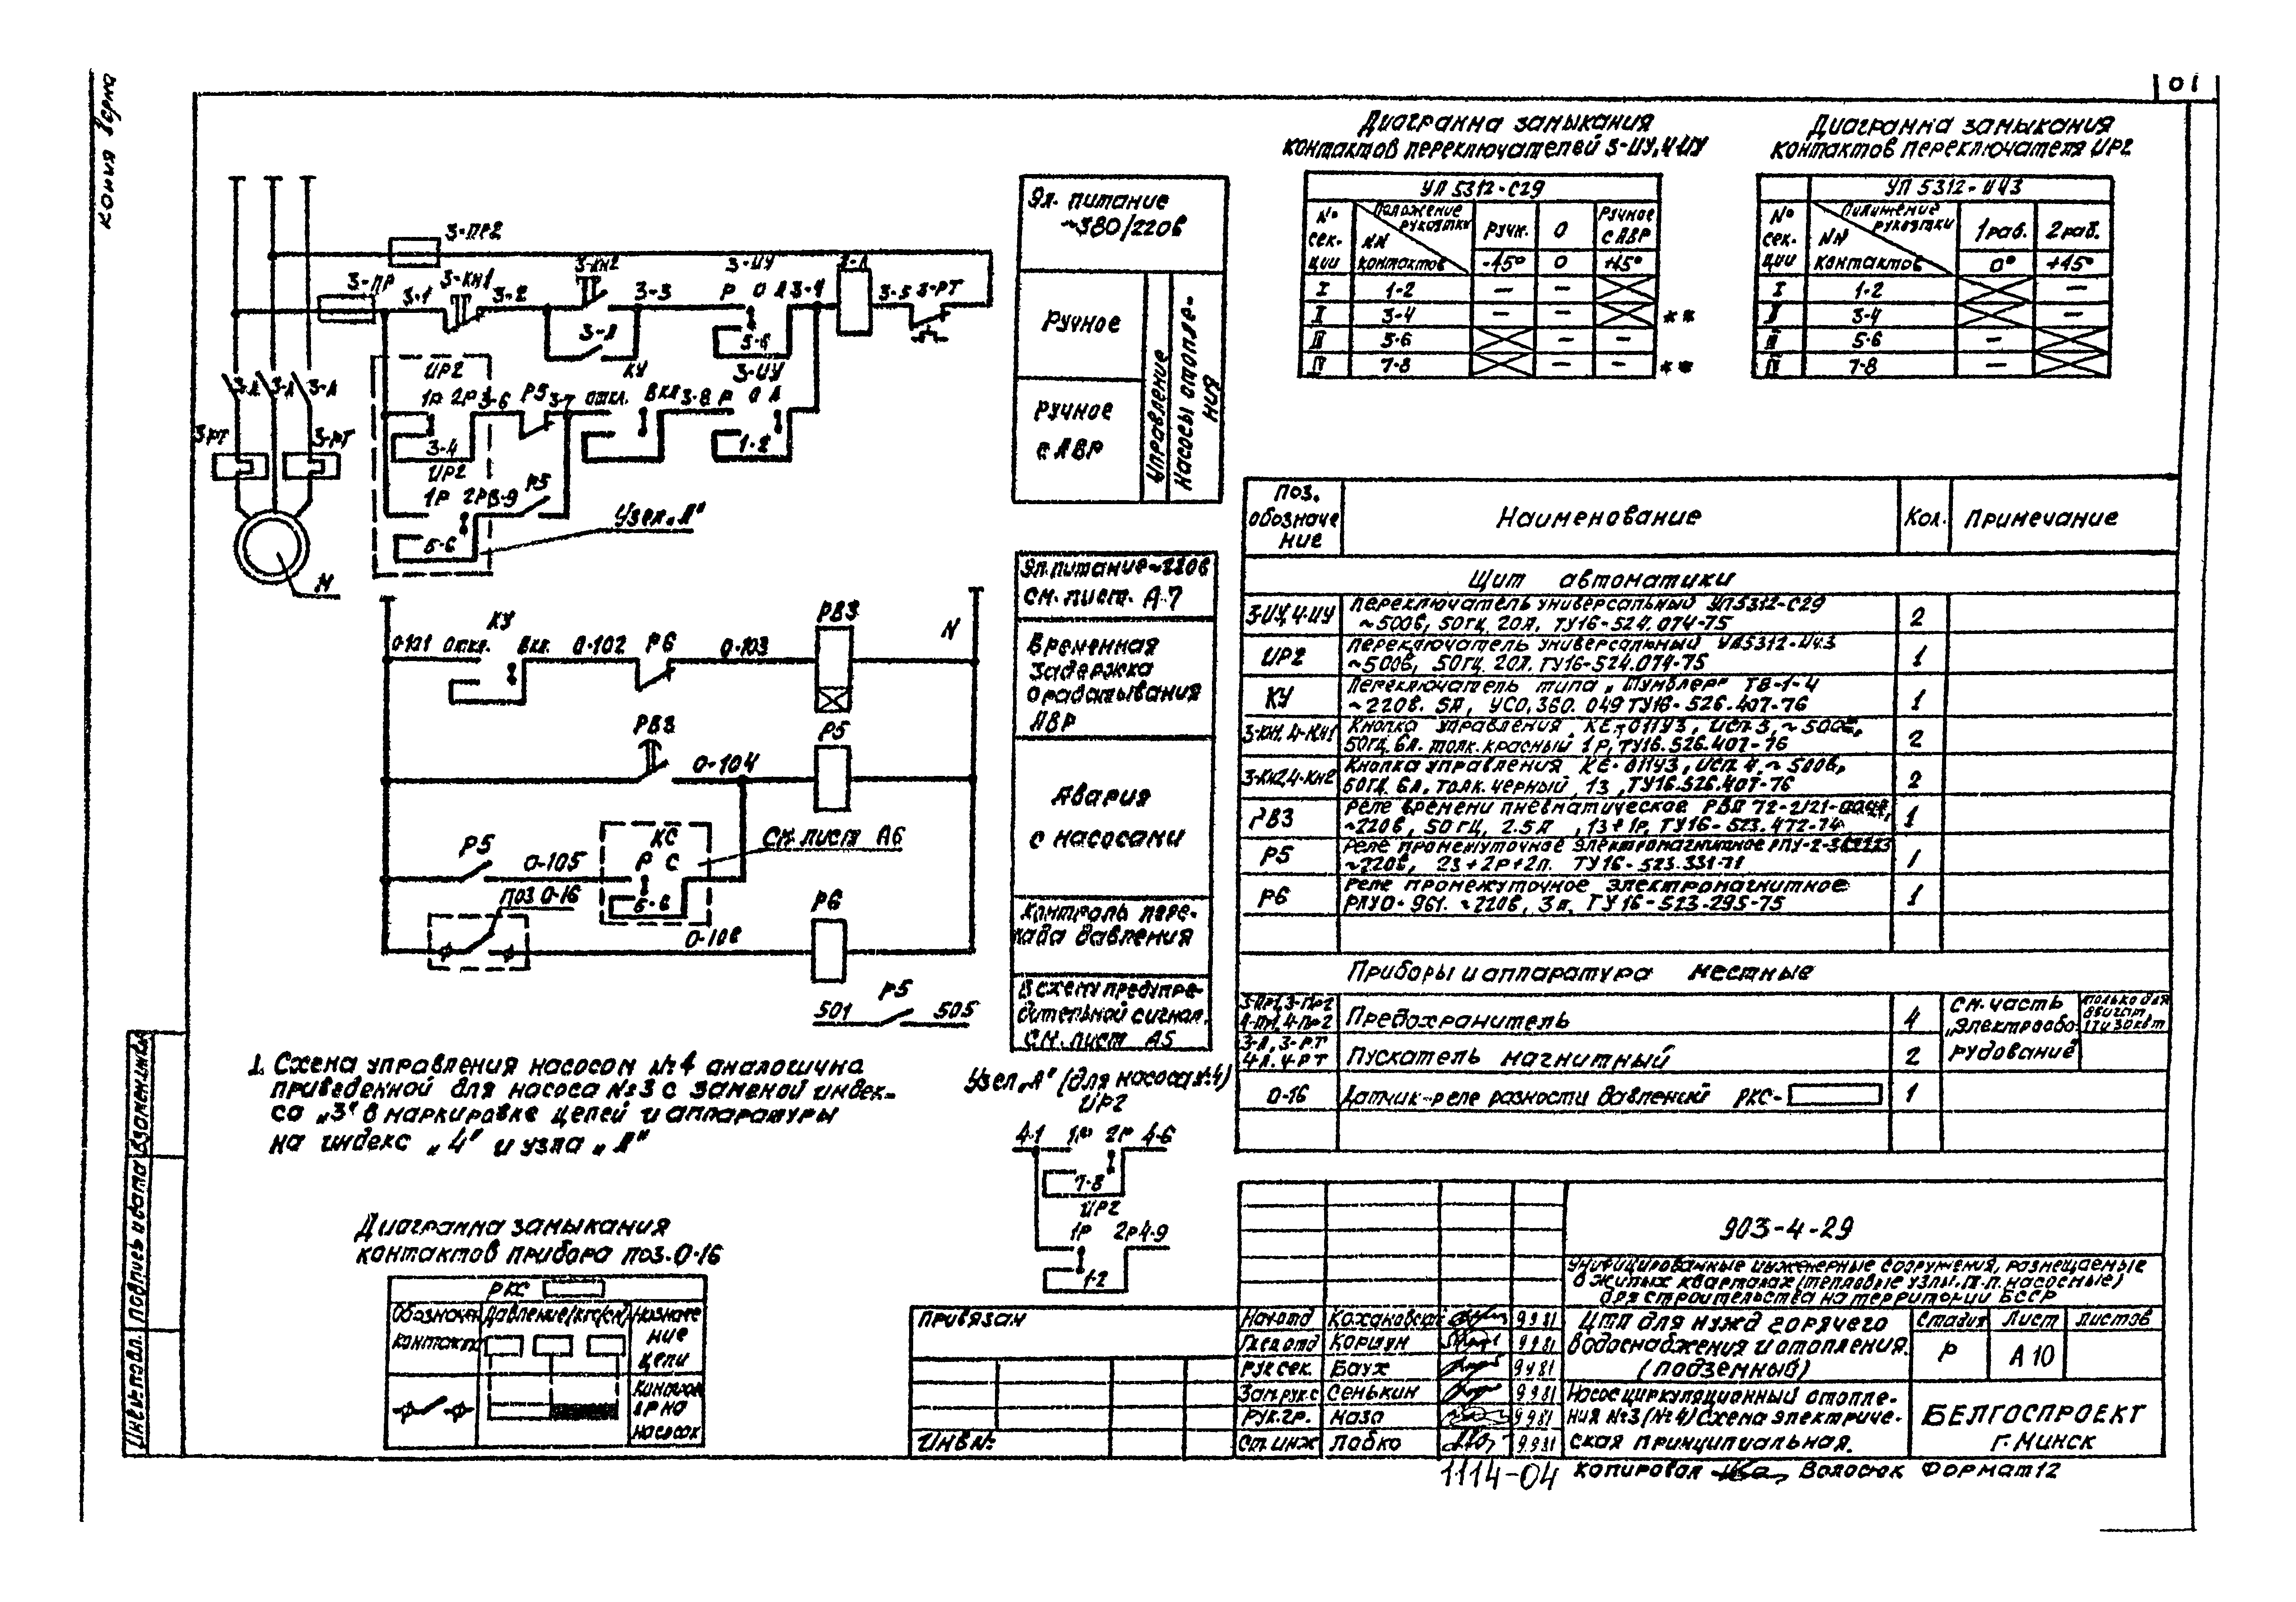 копия верна
01
Диаграмма замыкания
контактов переключателей 3-ИУ, 4-ИУ
УП 5312-С29
№ сек-ции
Положение рукоятки
NN контактов
Ручн. 0 Ручное с АВР
-45° 0 +45°
I 1-2 — —
II 3-4 — — **
III 5-6 — —
IV 7-8 — — **
Диаграмма замыкания
контактов переключателя ИР2
УП 5312-И43
№ сек-ции
Положение рукоятки
NN контактов
1 раб. 2 раб.
0° +45°
I 1-2 —
II 3-4 —
III 5-6 —
IV 7-8 —
3-ПР2
3-ПР 3-1 3-КН1 3-2 3-КН2 3-3 3-ИУ Р 0 А 3-4 3-Л 3-5 3-РТ
3-Л 5-6
ИР2 КУ 3-ИУ
3-Л 3-Л 3-Л
1Р 2Р 3-6 Р5 3-7 откл. вкл 3-8 Р 0 А
3-РТ 3-РТ
3-4 1-2
ИР2
1Р 2Р 3-9 Р5
Узел „А"
5-6
М
Эл. питание
~380/220в
Ручное
Ручное
с АВР
Управление
Насосы отопле-
ния
КУ РВ3 N
0-101 Откл. Вкл. 0-102 Р6 0-103
РВ3 Р5
0-104
КС
См. лист А6
Р5 0-105 Р С
поз 0-16
5-6 Р6
Р5
501 505
Эл. питание ~220в
см. лист. А-7
Временная
задержка
срабатывания
АВР
Авария
с насосами
Контроль пере-
пада давления
В схему предупре-
дительной сигнал.
см. лист А5
1. Схема управления насосом №4 аналогична
приведенной для насоса №3 с заменой индек-
са „3" в маркировке цепей и аппаратуры
на индекс „4" и узла „А"
Узел „А" (для насоса №4)
ИР2
4-1 1Р 2Р 4-6
7-8
ИР2
1Р 2Р 4-9
1-2
Диаграмма замыкания
контактов прибора поз. 0-16
РКС
Давление
Назначе
ние
цепи
насосах
Поз.
обозначе
ние
Наименование Кол. Примечание
Щит автоматики
3-ИУ, 4-ИУ Переключатель универсальный УП5312-С29
~500в, 50гц, 20А, ТУ16-524.074-75 2
ИР2 Переключатель универсальный УП5312-И43
~500в, 50гц, 20А. ТУ16-524.074-75 1
КУ Переключатель типа „Тумблер" ТВ-1-4
~220в. 5А, УСО,360. 049 ТУ16-526.407-76 1
3-КН1, 4-КН1 Кнопка управления, КЕ-011У3, исп. 3, ~500в,
50гц, 6А. толк. красный 1р, ТУ16.526.407-76 2
3-КН2, 4-КН2 Кнопка управления КЕ-011У3, исп 4, ~500в,
50гц, 6А, толк. черный, 1з, ТУ16.526.407-76 2
РВ3 Реле времени пневматическое РВП 72-2121-
~220в, 50 гц, 2.5А, 1з+1р, ТУ16-523.472-74 1
Р5 Реле промежуточное электромагнитное РПУ-2-
~220в, 2з+2р+2п. ТУ16-523.331-71 1
Р6 Реле промежуточное электромагнитное
РПУ0-961. ~220в, 3п, ТУ16-523-295-75 1
Приборы и аппаратура местные
3-ПР1, 3-ПР2
4-ПР1, 4-ПР2 Предохранитель 4 См. часть
„Электрообо-
рудование"
только для
двигат.
17 и 30 квт
3-Л, 3-РТ
4-Л. 4-РТ Пускатель магнитный 2
0-16 Датчик-реле разности давлений РКС- 1
903-4-29
Унифицированные инженерные сооружения, размещаемые
в жилых кварталах (тепловые узлы, т.п. насосные)
для строительства на территории БССР
ЦТП для нужд горячего
водоснабжения и отопления.
(подземный)
Стадия Лист Листов
Р А10
Насос циркуляционный отопле-
ния №3 (№4) Схема электриче-
ская принципиальная.
БЕЛГОСПРОЕКТ
г. Минск
Нач. отд 9.9.81
Гл. сп. отд Коршун 9.9.81
Рук сек. Баух 9.9.81
Зам. рук. с Сенькин 9.9.81
Рук. гр. Маза 9.9.81
Ст. инж Лобко 9.9.81
Привязан
Инв №
Инв. № подл.
Подпись и дата
Взам. инв. №
1114-04 Копировал Волосюк Формат 12